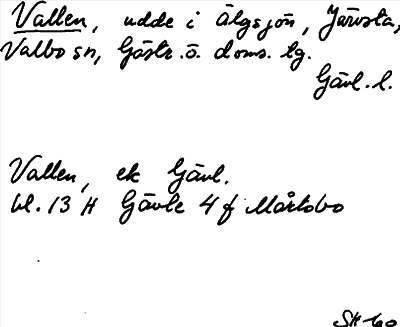 Vallen, udde i Älgsjön, Järvsta,
Valbo sn, Gästr. ö. doms. tg.
Gävl. l.
Vallen, ek Gävl.
bl. 13 H Gävle 4 f Mårtsbo